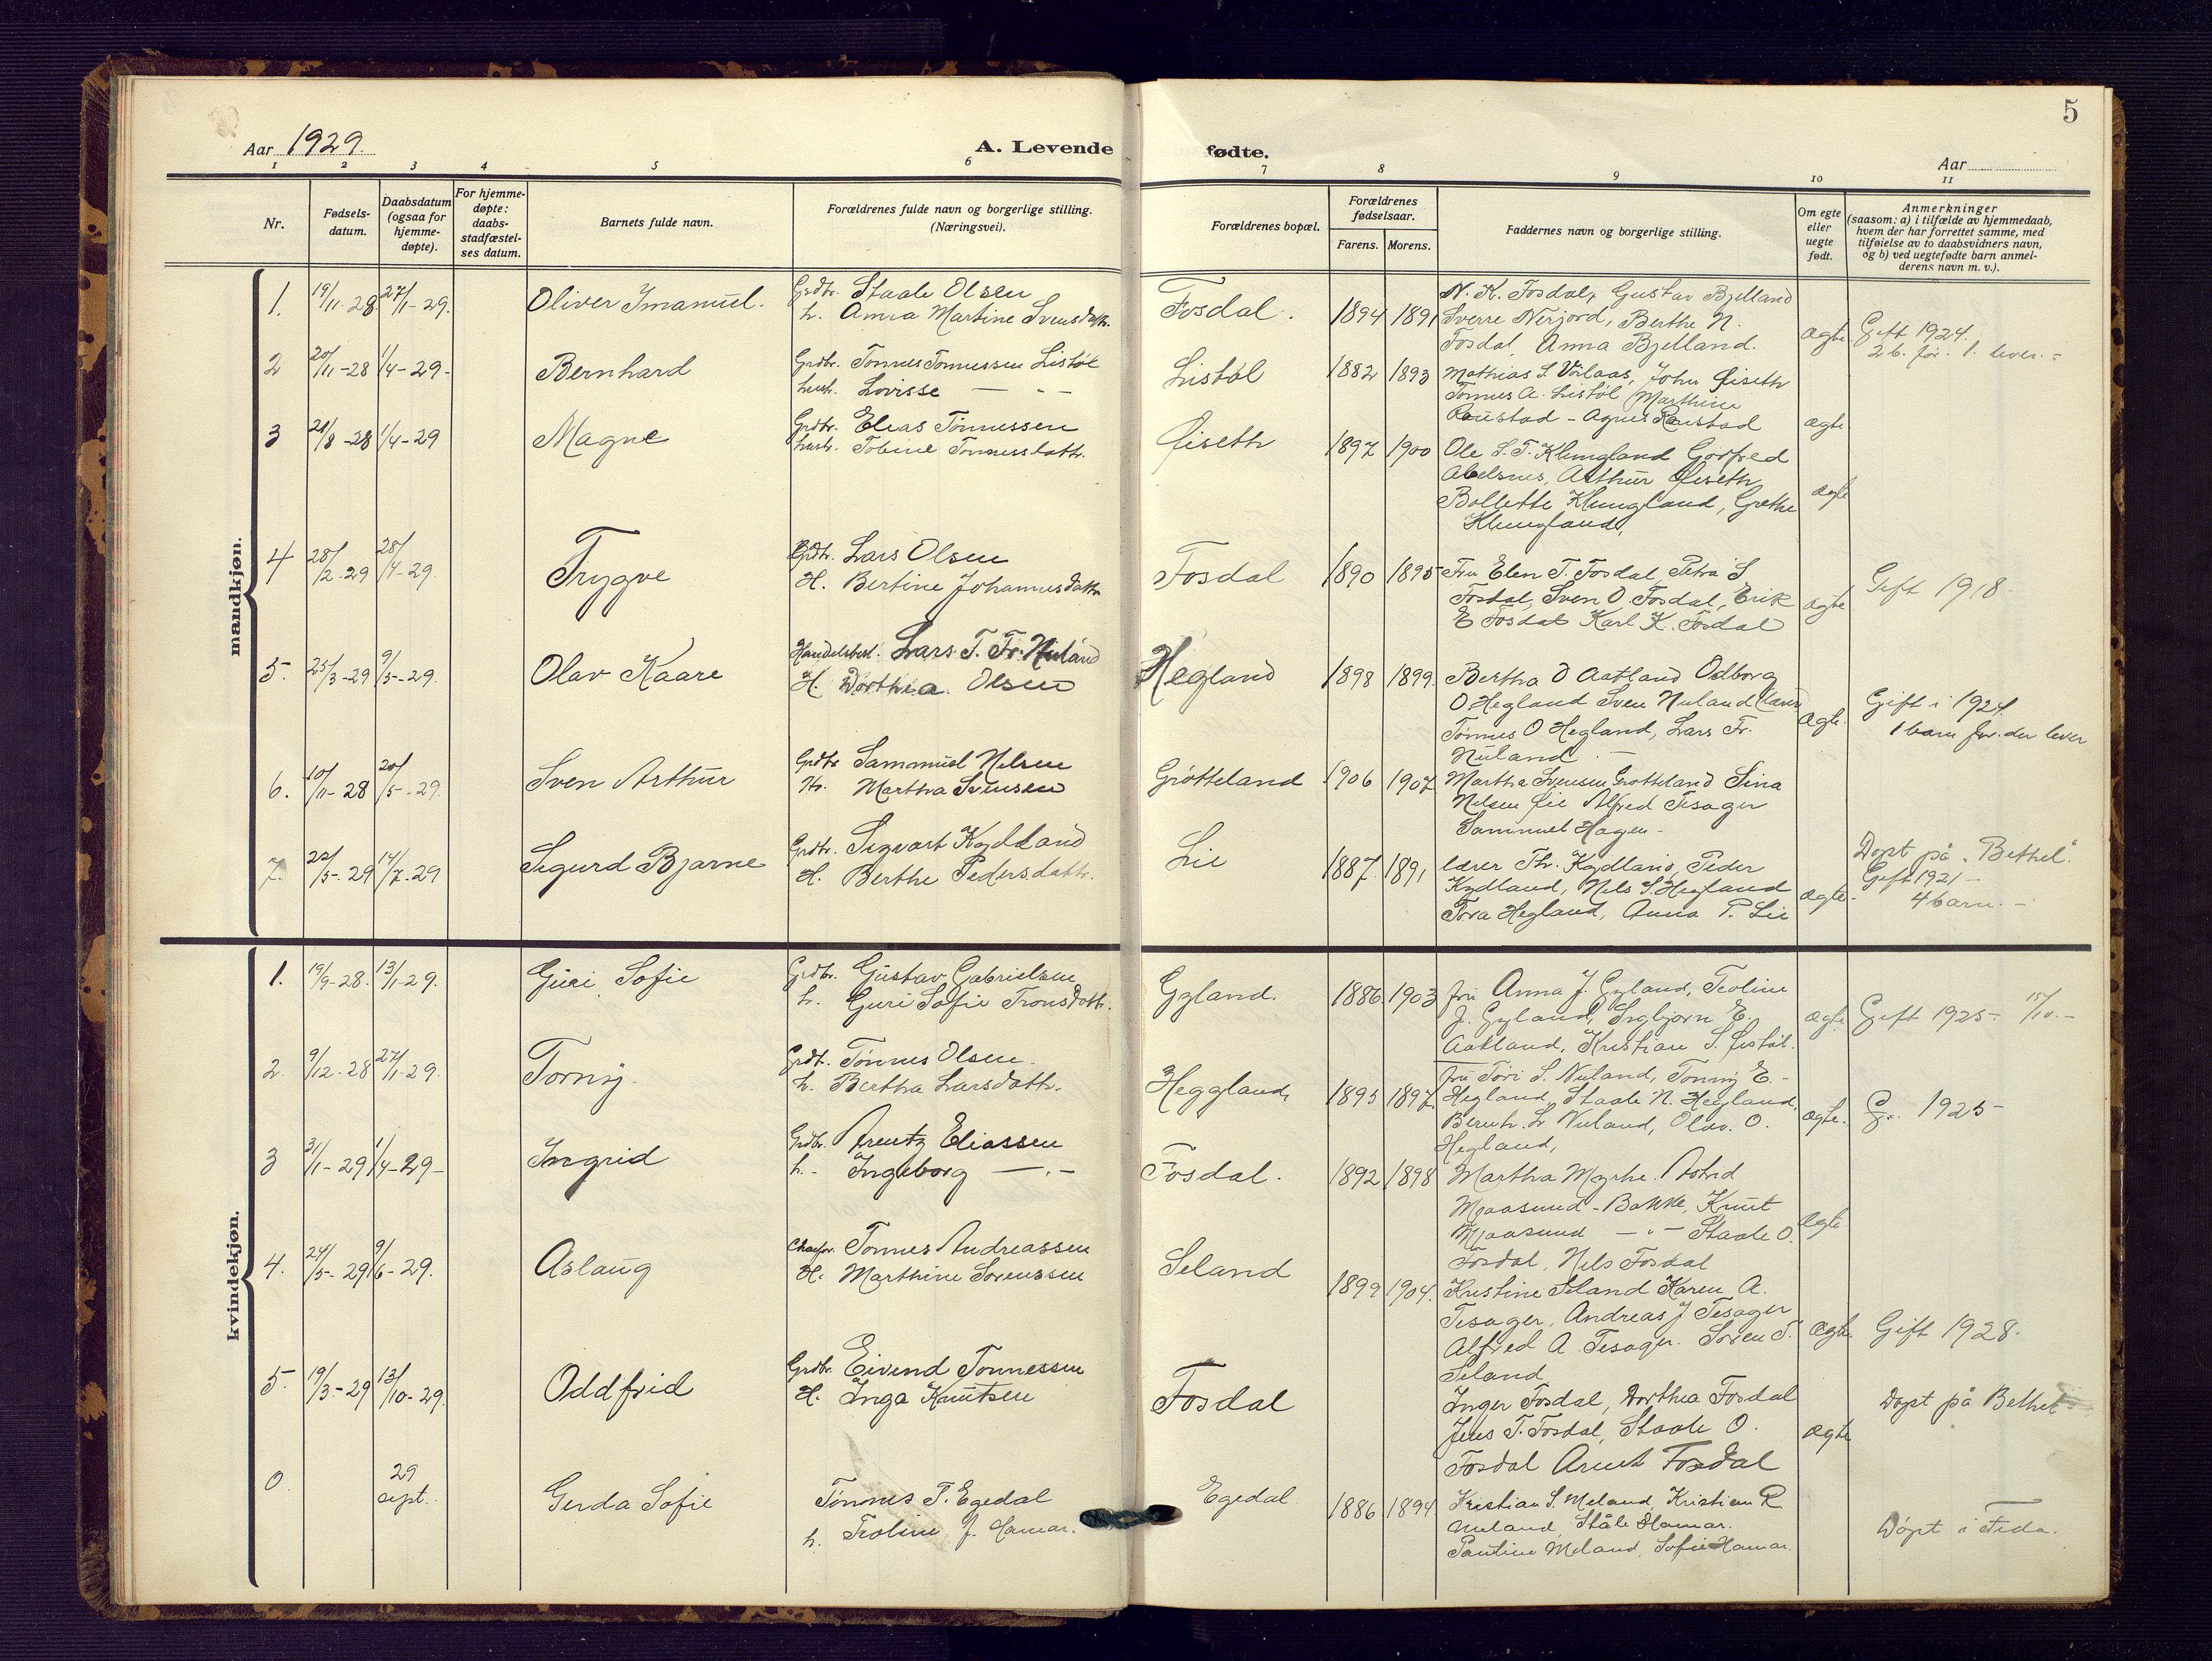 5
Aar 1929.
A. Levende fødte.
Aar
1 2 3 4 5 6 7 8 9 10 11
Nr.
Fødsels-
datum.
Daabsdatum
(ogsaa for
hjemme-
døpte).
For hjemme-
døpte:
daabs-
stadfæstel-
ses datum.
Barnets fulde navn.
Forældrenes fulde navn og borgerlige stilling.
(Næringsvei).
Forældrenes bopæl.
Forældrenes
fødselsaar.
Farens. Morens.
Faddernes navn og borgerlige stilling.
Om egte
eller
uegte
født.
Anmerkninger
(saasom: a) i tilfælde av hjemmedaab,
hvem der har forrettet samme, med
tilføielse av to daabsvidners navn,
og b) ved uegtefødte barn anmel-
derens navn m. v.).
mandkjøn.
1. 19/11-28 27/1-29. Oliver Imanuel.
Grdbr. Staale Olsen
h. Anna Martine Svensdatter.
Fosdal. 1894 1891
N. K. Fosdal, Gustav Bjelland
Sverre Nerjord, Berthe N.
Fosdal, Anna Bjelland.
ægte. Gift 1924.
2 b. før. 1. lever.-
2 20/11-28 1/4-29- Bernhard
Grdbr. Tønnes Tønnessen Listøl
hust. Lovisse — -
Listøl 1882 1893
Mathias S. John Øiseth
Tønnes A. Listøl Marthine
Raustad - Agnes Raustad
ægte
3 21/8-28 1/4-29 Magne
Grdbr. Elias Tønnessen
hust. Tobine Tønnesdattr.
Øiseth 1897 1900
Ole S. T. Klungland Gotfred
Abelsnes, Arthur Øiseth
Bollette Klungland, Grethe
Klungland,
ægte
4 28/2-29 28/4-29. Trygve
Grdbr. Lars Olsen
H. Bertine Johannesdattr
Fosdal 1890 1895
Fru Elen T. Fosdal, Petra S
Fosdal, Sven O. Fosdal, Erik
E Fosdal Karl K. Fosdal
ægte Gift 1918.
5. 25/3-29 9/5-29. Olav Kaare
Handelsbest. Lars T. Fr. Nuland
H. Dorthea. Olsen
Hegland 1898 1899.
Bertha O Aatland Odborg
O Hegland Sven Nuland
Tønnes O Hegland, Lars Fr.
Nuland
ægte. Gift i 1924.
1 barn før. der lever
6. 10/11-28 20/5-29. Sven Arthur
Grdbr Sammuel Nilsen
H. Martha Svensen
Grøtteland 1906 1907
Martha Svensen Grøtteland Sina
Nilsen Øie Alfred Tesager
Sammuel Hagen-
7. 22/5-29 14/7-29 Sigurd Bjarne
Grdbr. Sigvart Kydland
H. Berthe Pedersdattr.
Lie 1887. 1891
lærer Th. Kydland, Peder
Kydland, Nels S. Hegland
Tora Hegland, Anna P. Lie
ægte.
Døpt på „Bethel".
Gift 1921-
4 barn.-
kvindekjøn.
1. 19/9-28. 13/1-29. Guri Sofie
Grdbr. Gustav Gabrielsen
h. Guri Sofie Tronsdattr.
Gyland. 1886 1903
fru Anna J. Gyland, Teoline
J. Gyland, Ingbjørn E.
Aatland, Kristian S. Listøl.
ægte Gift 1925- 15/10.-
2. 9/12-28 27/1-29. Torny.
Grdbr. Tønnes Olsen.
h. Bertha Larsdattr.
Heggland, 1895 1897.
fru Tori S. Nuland, Tonny E.-
Hegland, Staale N. Hegland,
Bernh. L Nuland, Olav. O.
Hegland,
ægte. G. 1925-
3 31/1-29 1/4-29- Ingrid
Grdbr. Arentz Eliassen
h.- Ingeborg —.-
Fosdal. 1892 1898
Martha Myrhe. Astrid
Mjaasund - Bakke, Knut
Mjaasund — " - Staale O.
Fosdal, Nels Fosdal
ægte
4. 24/5-29 9/6-29. Aslaug
Chaufør. Tønnes Andreassen
H. Marthine Sørenssen
Seland 1899 1904.
Kristine Seland Karen A.
Tesager, Andreas J Tesager
Alfred A Tesager. Søren T.
Seland
ægte. Gift 1928.
5. 19/3-29 13/10-29. Oddfrid
Grdbr. Eivend Tønnessen
H. Inga Knutsen
Fosdal
Inger Fosdal, Dorthea Fosdal
Jens T. Fosdal, Staale O.
Fosdal Arent Fosdal
ægte Døpt på Bethel
0. 29
sept. Gerda Sofie
Tønnes T. Egedal
h. Teoline J. Hamar.
Egedal 1886 1894
Kristian S. Meland, Kristian R
Meland, Ståle Hamar.
Pauline Meland, Sofie Hamar.
Døpt i Feda.